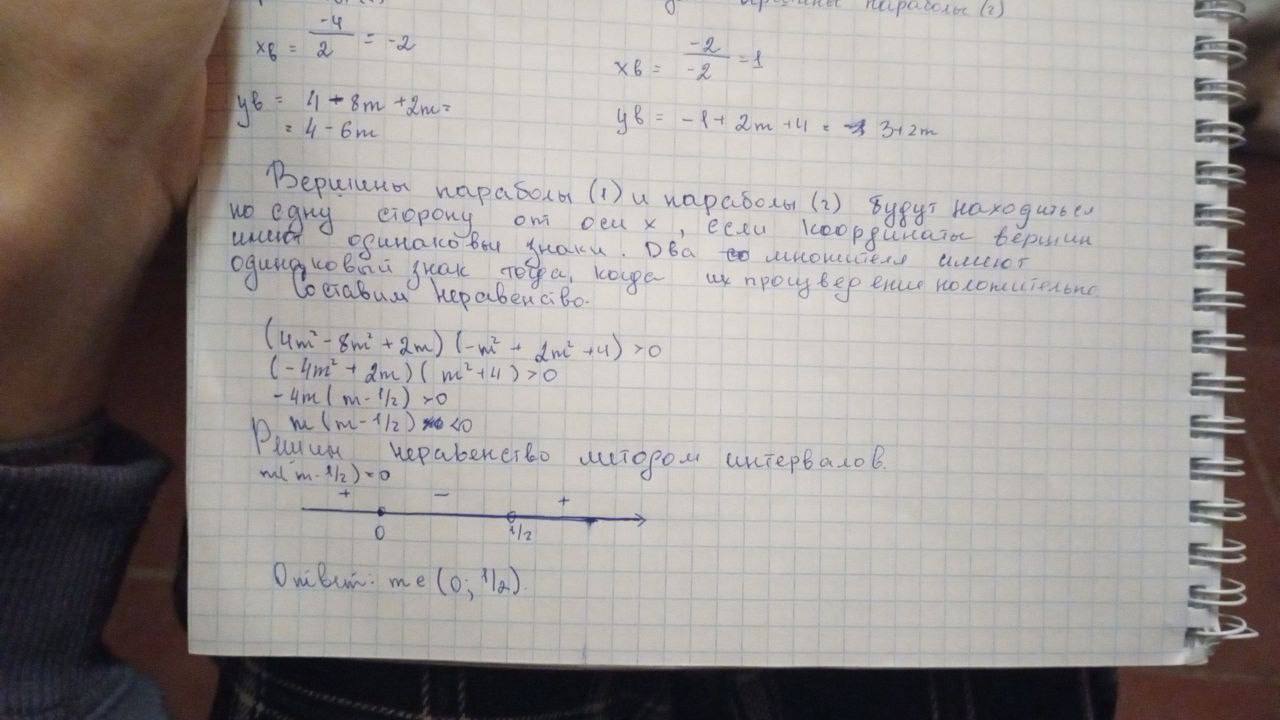 вершины параболы (2)
xв = -4/2 = -2
xв = -2/-2 = 1
yв = 4 - 8m + 2m =
= 4 - 6m
yв = -1 + 2m + 4 = 3+2m
Вершины параболы (1) и параболы (2) будут находиться
по одну сторону от оси x, если координаты вершин
имеют одинаковые знаки. Два множителя имеют
одинаковый знак тогда, когда их произведение положительно.
Составим неравенство.
(4m² - 8m² + 2m) (-m² + 2m² + 4) > 0
(-4m² + 2m) (m² + 4) > 0
-4m (m - 1/2) > 0
m (m - 1/2) < 0
Решим неравенство методом интервалов.
m(m - 1/2) = 0
+ − +
0 1/2
Ответ: m ∈ (0; 1/2).